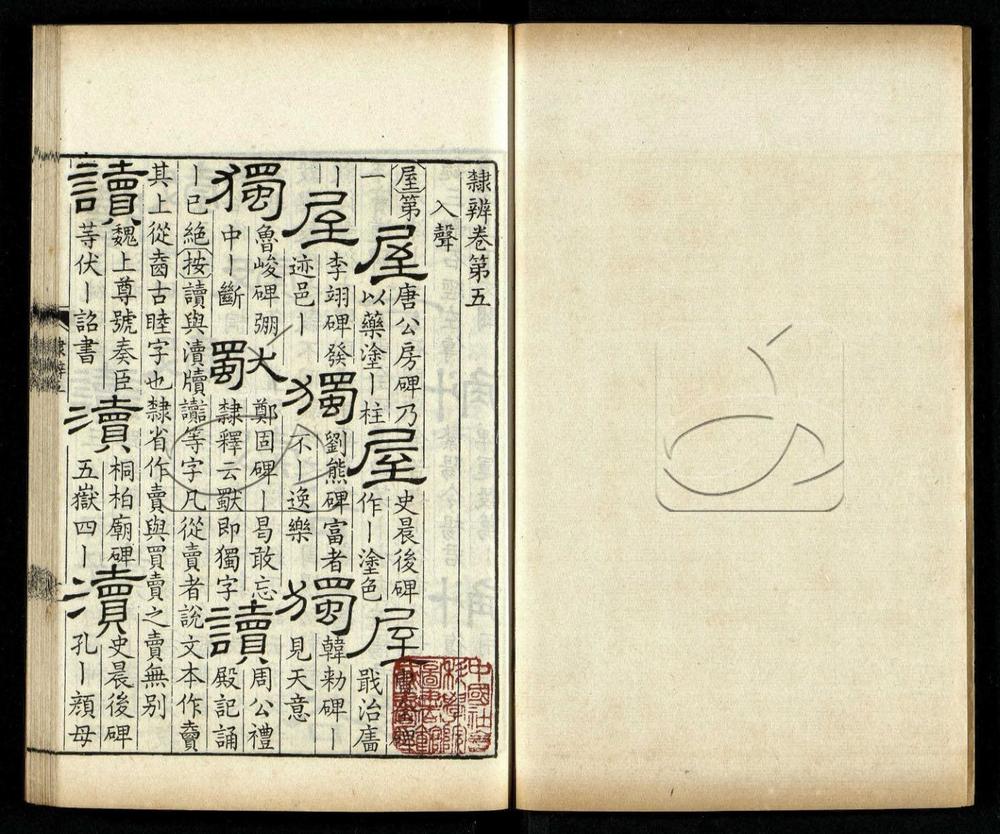 隸辨卷第五
入聲
屋第
一
屋
唐公房碑乃
以藥塗丨柱
屋
史晨後碑
作丨塗色
屋
碑
戢治廧
丨
屋
李翊碑發
迹邑丨
獨
劉熊碑富者
不丨逸樂
獨
韓勑碑丨
見天意
獨
魯峻碑弸
中丨斷
鄭固碑丨曷敢忘
隸釋云即獨字
讀
周公禮
殿記誦
丨已絕按讀與瀆牘讟等字凡從賣者說文本作賣
其上從古睦字也隸省作賣與買賣之賣無別
讀
魏上尊號奏臣
等伏丨詔書
瀆
桐柏廟碑
五嶽四丨
瀆
史晨後碑
孔丨顏母
中國社會
科學院
圖書館